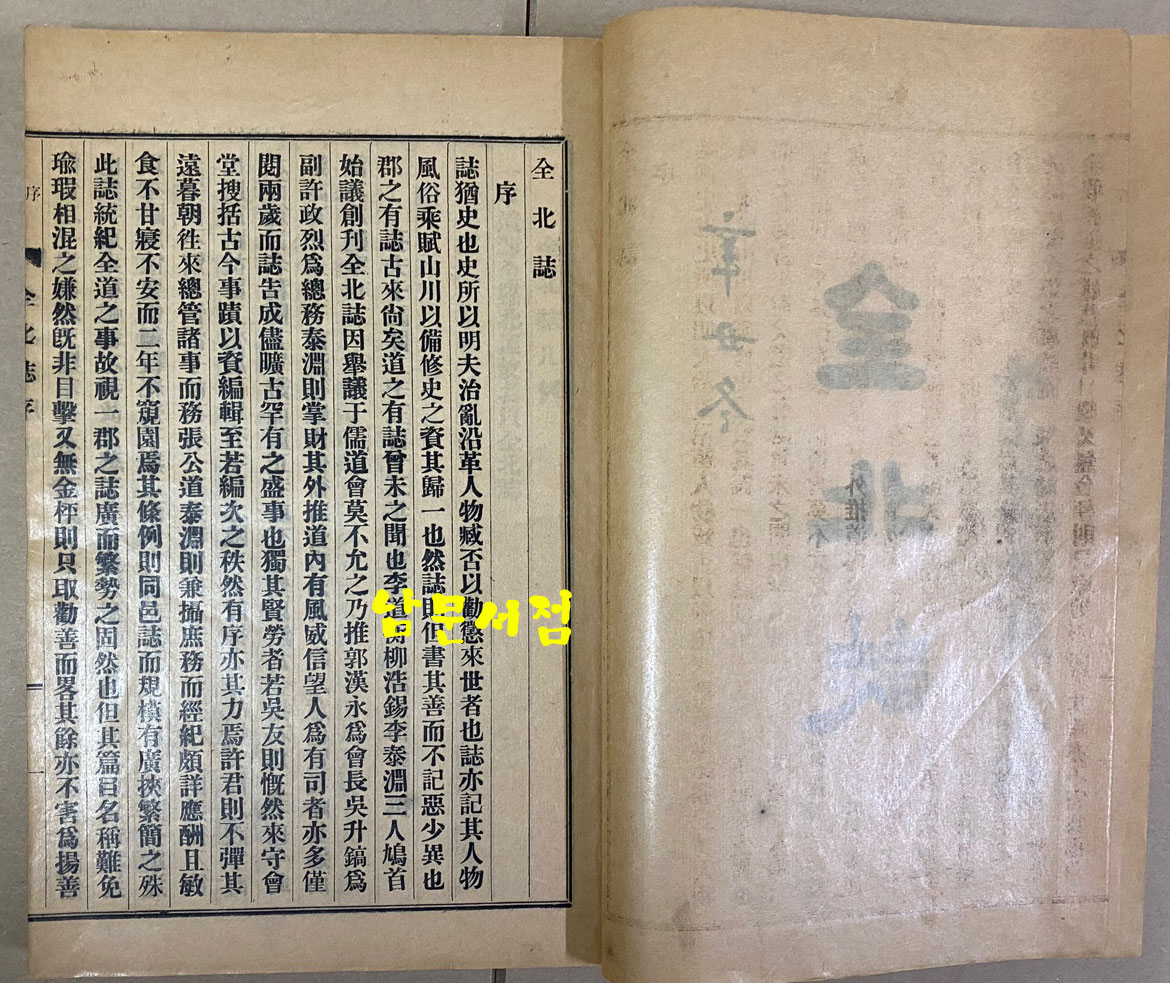 全北誌
序
誌猶史也史所以明夫治亂沿革人物臧否以勸懲來世者也誌亦記其人物
風俗乘賦山川以備修史之資其歸一也然誌則但書其善而不記惡少異也
郡之有誌古來尙矣道之有誌曾未之聞也李道衡柳浩錫李泰淵三人鳩首
始議創刊全北誌因舉議于儒道會莫不允之乃推郭漢永爲會長吳升鎬爲
副許政烈爲總務泰淵則掌財其外推道內有風威信望人爲有司者亦多僅
閱兩歲而誌告成儘曠古罕有之盛事也獨其賢勞者若吳友則慨然來守會
堂搜括古今事蹟以資編輯至若編次之秩然有序亦其力焉許君則不彈其
遠暮朝徃來總管諸事而務張公道泰淵則兼攝庶務而經紀頗詳應酬且敏
食不甘寢不安而二年不窺園焉其條例則同邑誌而規模有廣挾繁簡之殊
此誌統紀全道之事故視一郡之誌廣而繁勢之固然也但其篇目名稱難免
瑜瑕相混之嫌然旣非目擊又無金秤則只取勸善而畧其餘亦不害爲揚善
序
全北誌序
남문서점
全北誌
辛丑冬